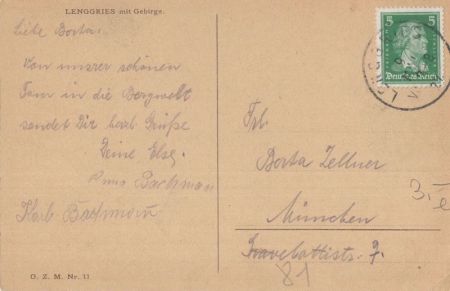 LENGGRIES mit Gebirge.
Liebe Berta!
Von unserer schönen
Tour in die Bergwelt
sendet Dir herzl. Grüße
Deine Else.
Bachmann
Karl Bachmann
G. Z. M. Nr. 11
5 5
Deutsches Reich
Frl.
Berta Zellner
München
81
3.-